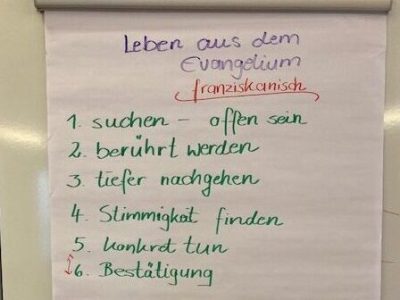 Leben aus dem
Evangelium
franziskanisch
1. suchen – offen sein
2. berührt werden
3. tiefer nachgehen
4. Stimmigkeit finden
5. konkret tun
6. Bestätigung